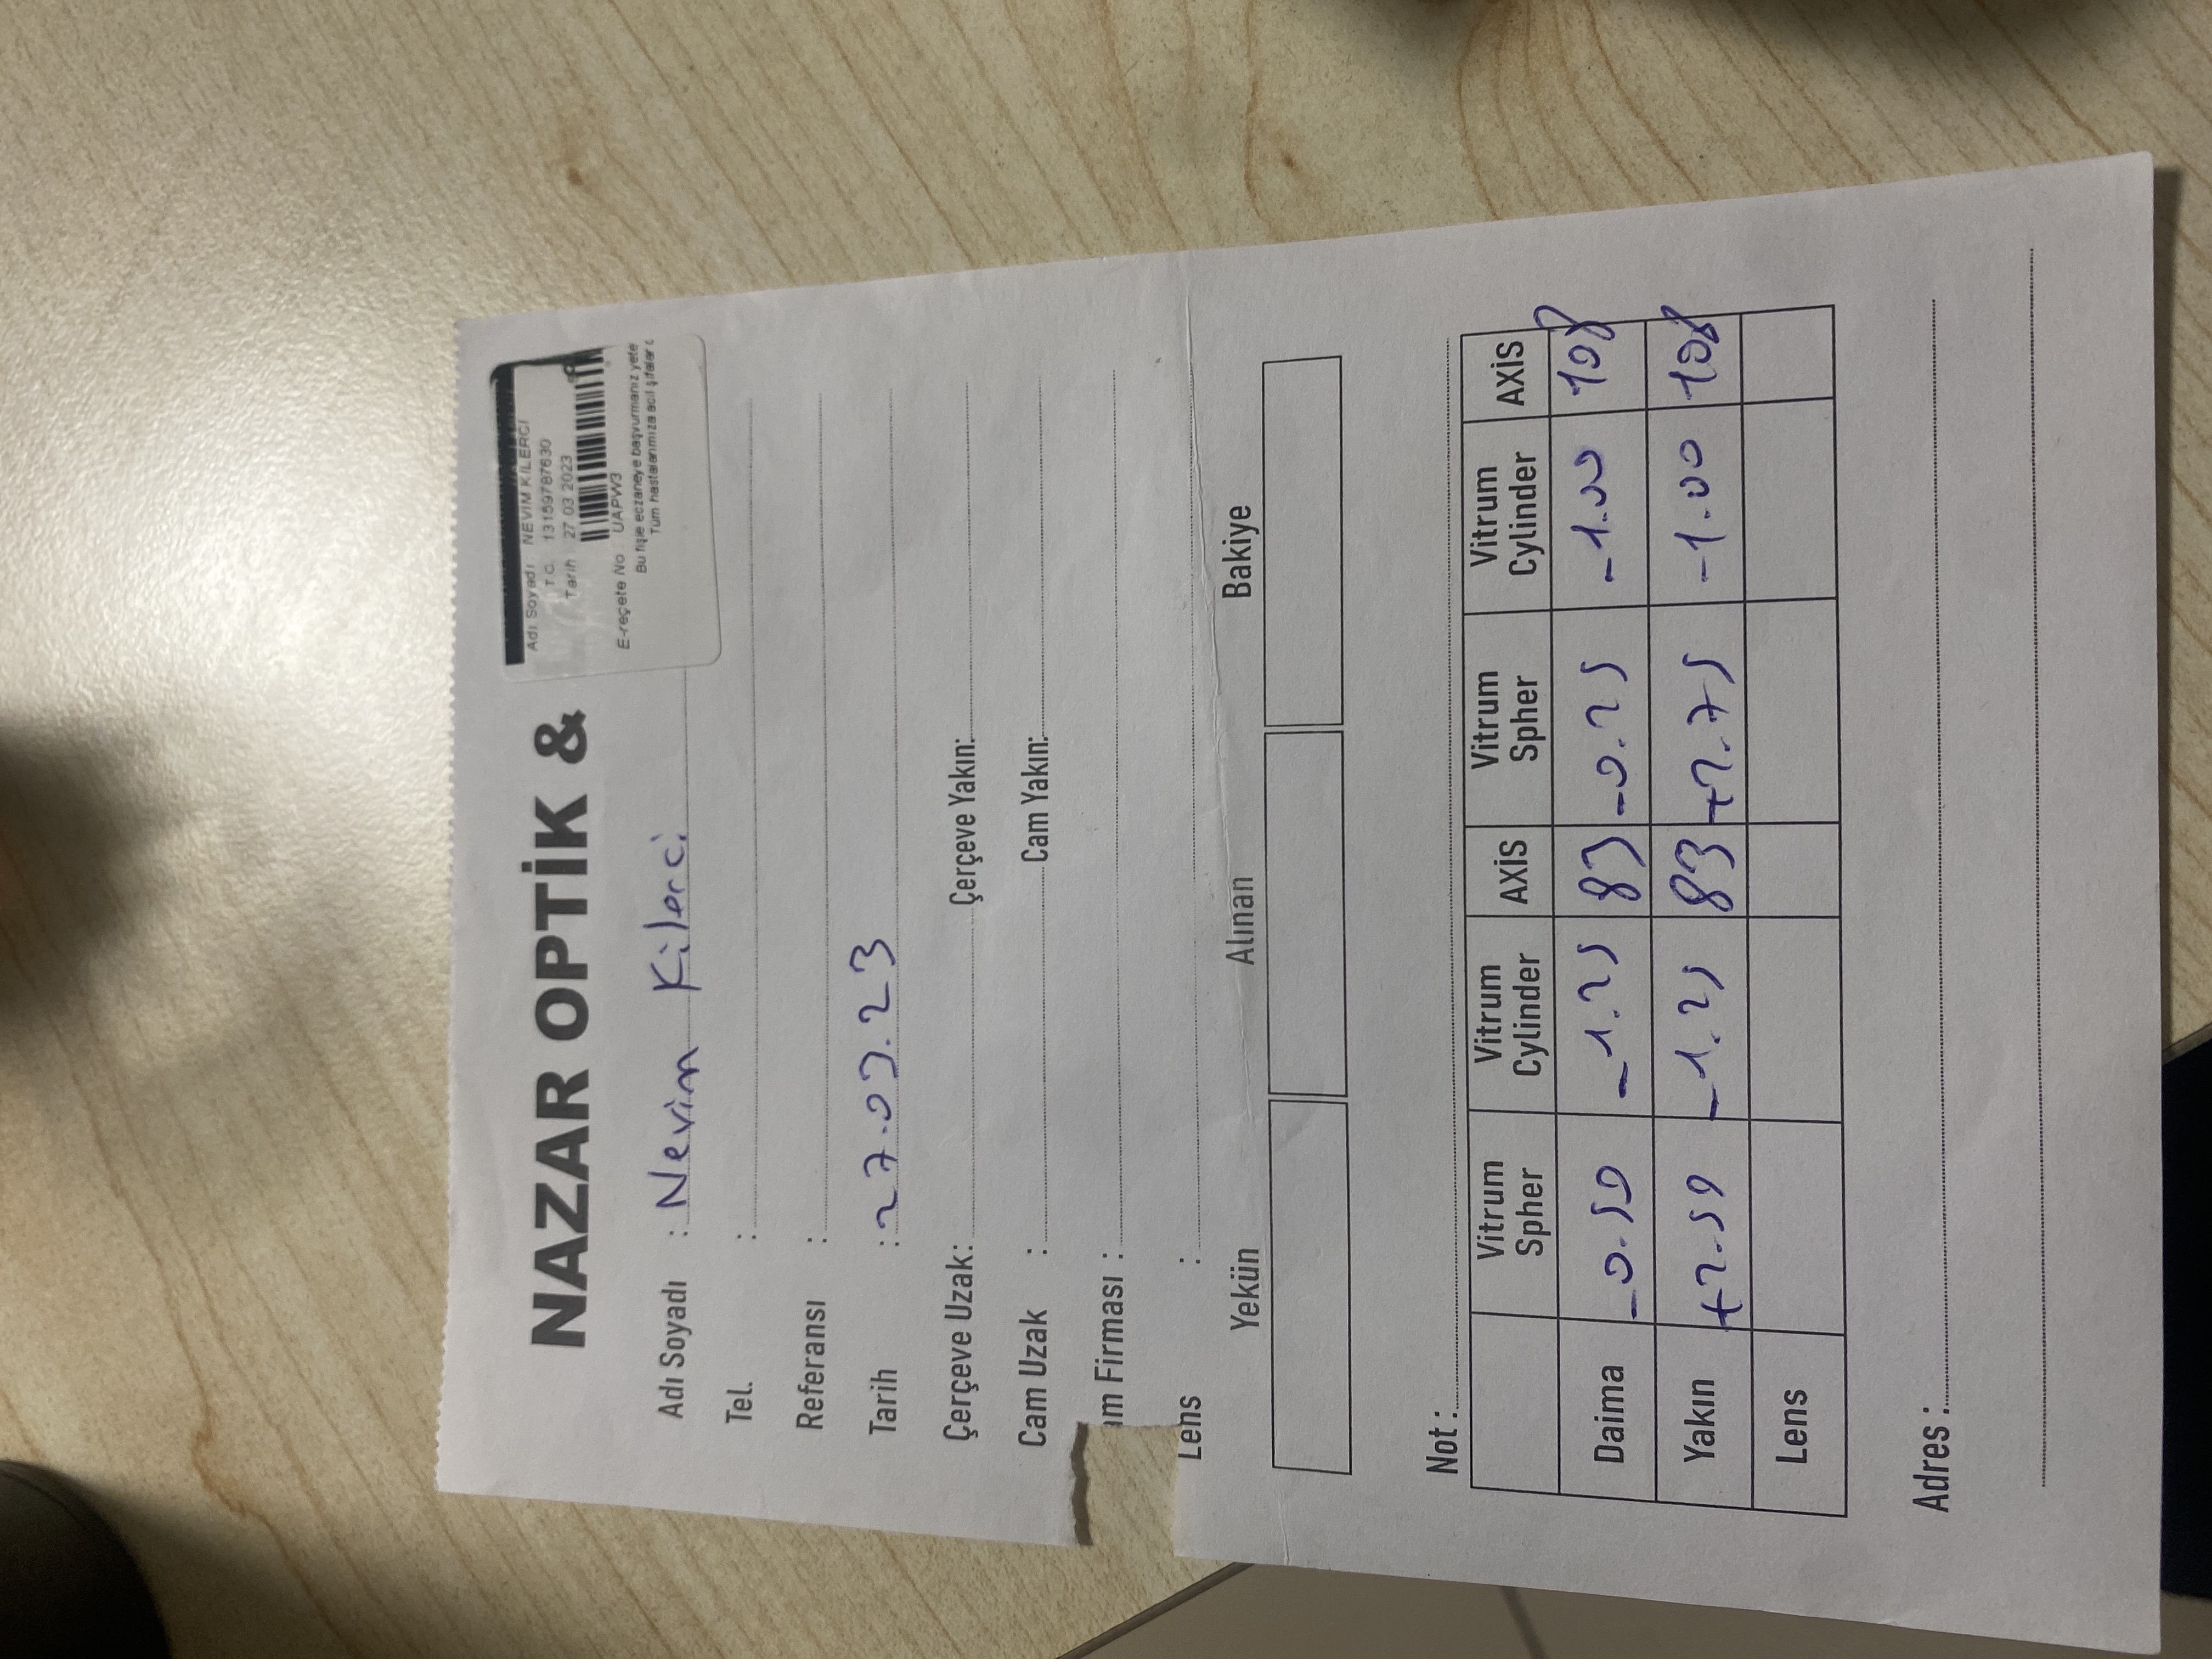 NAZAR OPTİK &
Adı Soyadı : NEVİM KİLERCİ
T.C. 13159787630
Tarih : 27.03.2023
E-reçete No : UAPW3
Bu fişle eczaneye başvurmanız yete
Tüm hastalarımıza acil şifalar d
Adı Soyadı : Nevim Kilerci
Tel. :
Referansı :
Tarih : 27.03.23
Çerçeve Uzak: Çerçeve Yakın:
Cam Uzak : Cam Yakın:
am Firması :
Lens :
Yekün Alınan Bakiye
Not :
Vitrum Spher Vitrum Cylinder AXİS Vitrum Spher Vitrum Cylinder AXİS
Daima -0.50 -1.25 83 -0.25 -1.00 108
Yakın +2.50 -1.25 83 +2.75 -1.00 108
Lens
Adres :